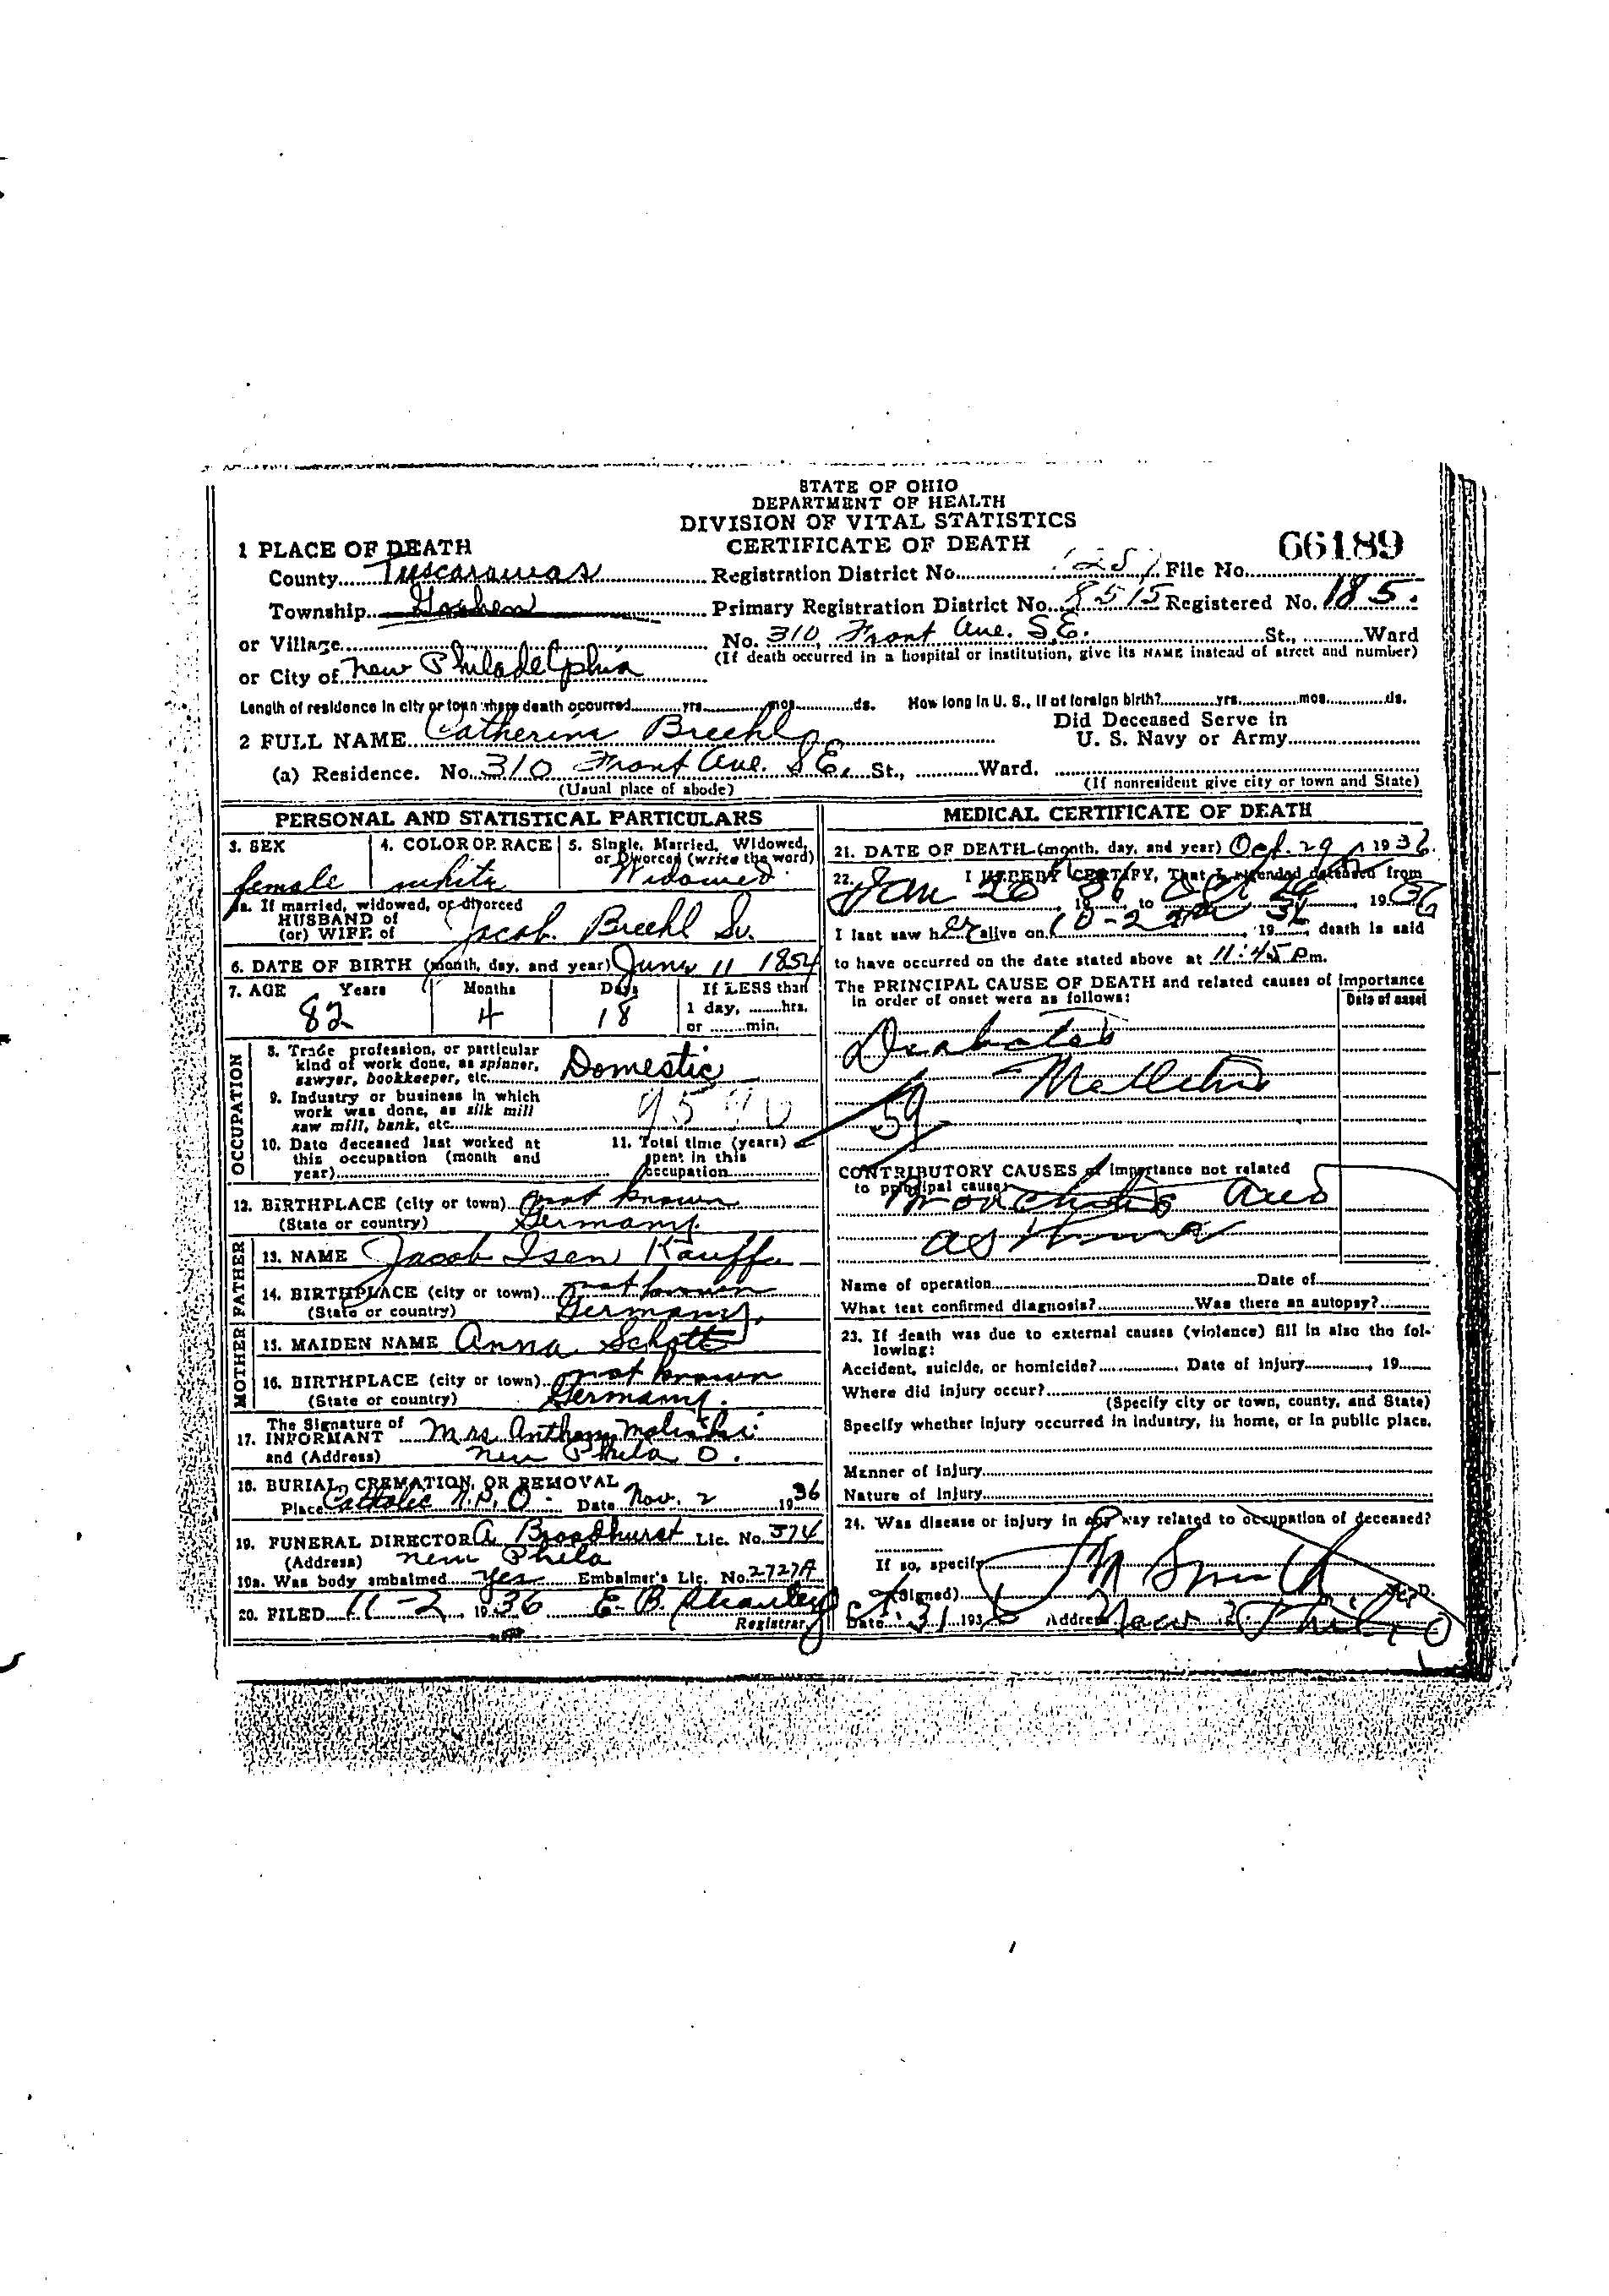 STATE OF OHIO
DEPARTMENT OF HEALTH
DIVISION OF VITAL STATISTICS
CERTIFICATE OF DEATH
66189
1 PLACE OF DEATH
County Tuscarawas Registration District No. File No.
Township Goshen Primary Registration District No. 8515 Registered No. 185.
or Village No. 310 Front Ave. S.E. St., Ward
(If death occurred in a hospital or institution, give its NAME instead of street and number)
or City of New Philadelphia
Length of residence in city or town where death occurred yrs. mos. ds. How long in U. S., if of foreign birth? yrs. mos. ds.
2 FULL NAME Catherine Breehl Did Deceased Serve in U. S. Navy or Army
(a) Residence. No. 310 Front Ave. S E. St., Ward.
(Usual place of abode) (If nonresident give city or town and State)
PERSONAL AND STATISTICAL PARTICULARS
3. SEX 4. COLOR OR RACE 5. Single, Married, Widowed, or Divorced (write the word)
female white Widowed
5a. If married, widowed, or divorced
HUSBAND of
(or) WIFE of Jacob Breehl Sr.
6. DATE OF BIRTH (month, day, and year) June 11 1854
7. AGE Years Months Days If LESS than
82 4 18 1 day, hrs.
or min.
OCCUPATION
8. Trade profession, or particular
kind of work done, as spinner,
sawyer, bookkeeper, etc. Domestic
9. Industry or business in which
work was done, as silk mill
saw mill, bank, etc.
10. Date deceased last worked at
this occupation (month and
year)
11. Total time (years)
spent in this
occupation
12. BIRTHPLACE (city or town) not known
(State or country) Germany
FATHER
13. NAME Jacob Isen Kauffer
14. BIRTHPLACE (city or town) not known
(State or country) Germany.
MOTHER
15. MAIDEN NAME Anna Schott
16. BIRTHPLACE (city or town) not known
(State or country) Germany.
17. The Signature of INFORMANT Mrs. Anthony
and (Address) New Phila O.
18. BURIAL, CREMATION, OR REMOVAL
Place Catholic N.P.O. Date Nov. 2 1936
19. FUNERAL DIRECTOR A Broadhurst Lic. No. 374
(Address) New Phila
19a. Was body embalmed yes Embalmer's Lic. No. 2727A
20. FILED 11-2 1936 E. B. Shanley
Registrar
MEDICAL CERTIFICATE OF DEATH
21. DATE OF DEATH (month, day, and year) Oct. 29, 1936.
22. I HEREBY CERTIFY, That I attended deceased from
Jan 20 1936 to Oct 29 1936
I last saw her alive on 10-2 1936, death is said
to have occurred on the date stated above at 11:45 Pm.
The PRINCIPAL CAUSE OF DEATH and related causes of importance
in order of onset were as follows: Date of onset
Diabetes
Mellitus
59
CONTRIBUTORY CAUSES of importance not related
to principal cause:
Bronchitis and
asthma
Name of operation Date of
What test confirmed diagnosis? Was there an autopsy?
23. If death was due to external causes (violence) fill in also the fol-
lowing:
Accident, suicide, or homicide? Date of injury 19
Where did injury occur?
(Specify city or town, county, and State)
Specify whether injury occurred in industry, in home, or in public place.
Manner of injury
Nature of injury
24. Was disease or injury in any way related to occupation of deceased?
If so, specify
(Signed) Smith M.D.
Date 31 1936 Address New Phila O